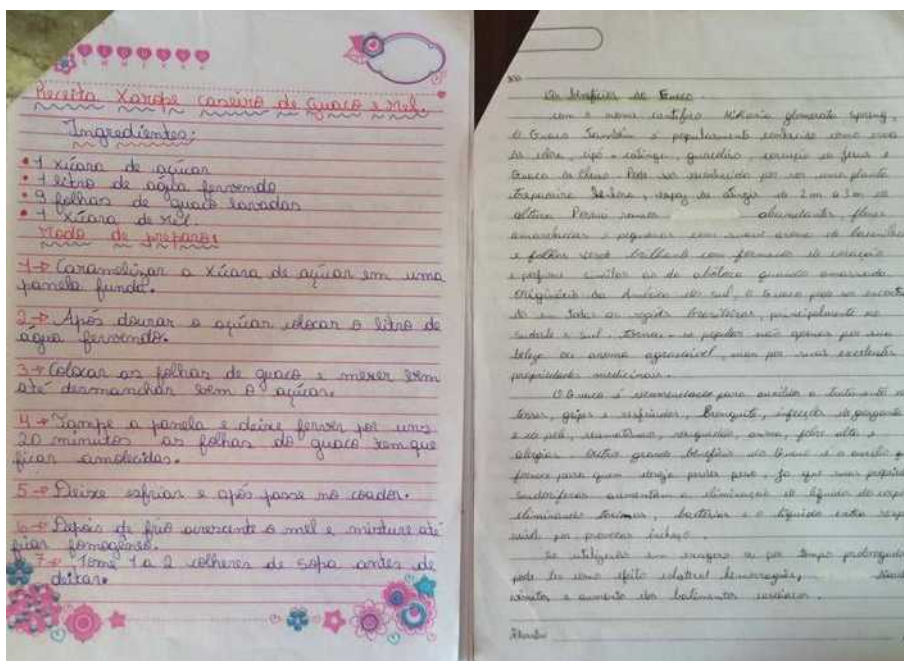 Receita Xarope caseiro de Guaco e Mel.
Ingredientes:
• 1 xícara de açúcar
• 1 litro de água fervendo
• 9 folhas de guaco lavadas
• 1 xícara de mel.
Modo de preparo:
1→ Caramelizar a xícara de açúcar em uma
panela funda.
2→ Após dourar o açúcar colocar o litro de
água fervendo.
3→ Colocar as folhas de guaco e mexer bem
até desmanchar bem o açúcar.
4→ Tampe a panela e deixe ferver por uns
20 minutos as folhas do guaco tem que
ficar amolecidas.
5→ Deixe esfriar e após passe no coador.
6→ Depois de frio acrescente o mel e misture até
ficar homogêneo.
7→ Tome 1 a 2 colheres de sopa antes de
deitar.
Os benefícios do Guaco.
Com o nome científico Mikania glomerata Spreng,
o Guaco também é popularmente conhecido como erva
de cobra, cipó-catinga, guacoliso, coração de Jesus e
Guaco de Cheiro. Pode ser reconhecido por ser uma planta
trepadeira capaz de atingir de 2 m a 3 m de
altura. Possui ramos abundantes, flores
amareladas e pequenas com suave aroma de baunilha
e folhas verde brilhante com formado de coração
e perfume similar ao de abóbora quando amassada.
Originário da América do sul, o Guaco pode ser
em todas as regiões brasileiras, principalmente no
sudeste e sul. popular não apenas por sua
beleza ou aroma agradável, mas por suas excelentes
propriedades medicinais.
O Guaco é recomendado para auxiliar o tratamento de
tosses, gripes e resfriados, bronquite, infecção da garganta
e da pele, reumatismo, rouquidão, asma, febre alta e
alergias. Outro grande benefício do Guaco é o auxílio que
fornece para quem deseja perder peso, já que suas
sudoríferas aumentam a eliminação de líquido do corpo
eliminando toxinas, bactérias e o líquido extra
por provocar inchaço.
Se utilizado em exagero ou por tempo prolongado
pode ter como efeito colateral hemorragias,
vômitos e aumento dos batimentos cardíacos.